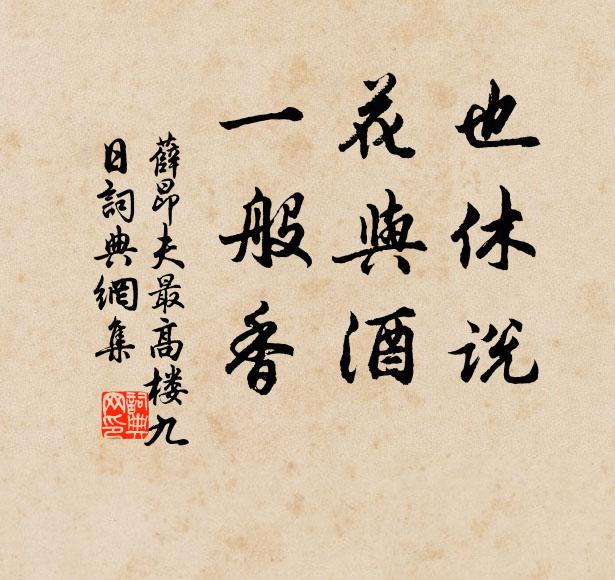 也休说
花與酒
一般香
薛昂夫最高楼九
日詞典網集
詞典网印